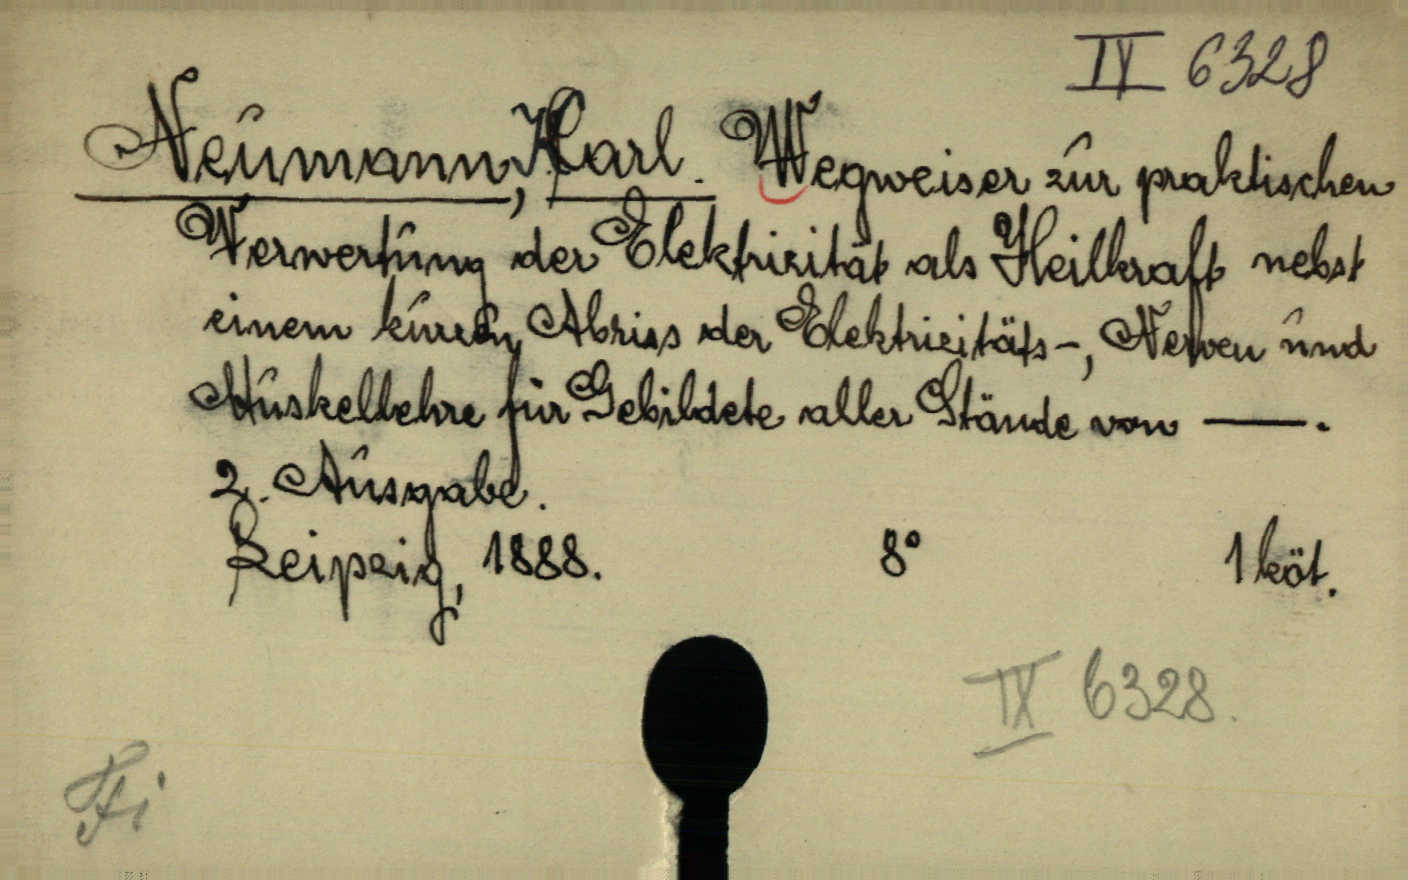 IX 6328
Neumann, Karl. Wegweiser zur praktischen
Verwertung der Elektrizität als Heilkraft nebst
einem kurzen Abriss der Elektrizitäts-, Nerven und
Muskellehre für Gebildete aller Stände von —.
2. Ausgabe.
Leipzig, 1888. 8° 1 köt.
IX 6328.